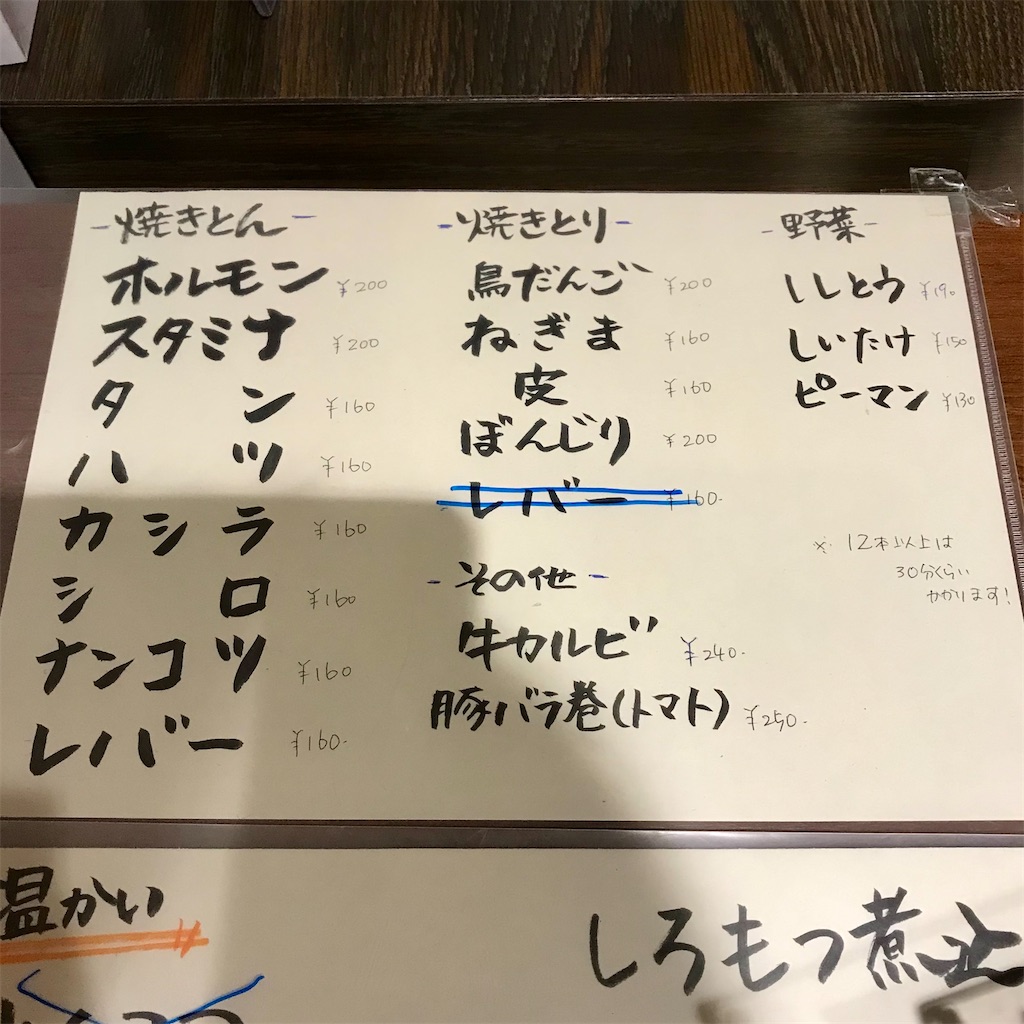 -焼きとん-
ホルモン ¥200
スタミナ ¥200
タン ¥160
ハツ ¥160
カシラ ¥160
シロ ¥160
ナンコツ ¥160
レバー ¥160-
-焼きとり-
鳥だんご ¥200
ねぎま ¥160
皮 ¥160
ぼんじり ¥200
レバー ¥160-
-その他-
牛カルビ ¥240-
豚バラ巻(トマト) ¥250-
-野菜-
ししとう ¥190
しいたけ ¥150
ピーマン ¥130
※ 12本以上は
30分くらい
かかります!
温かい
しろもつ煮込